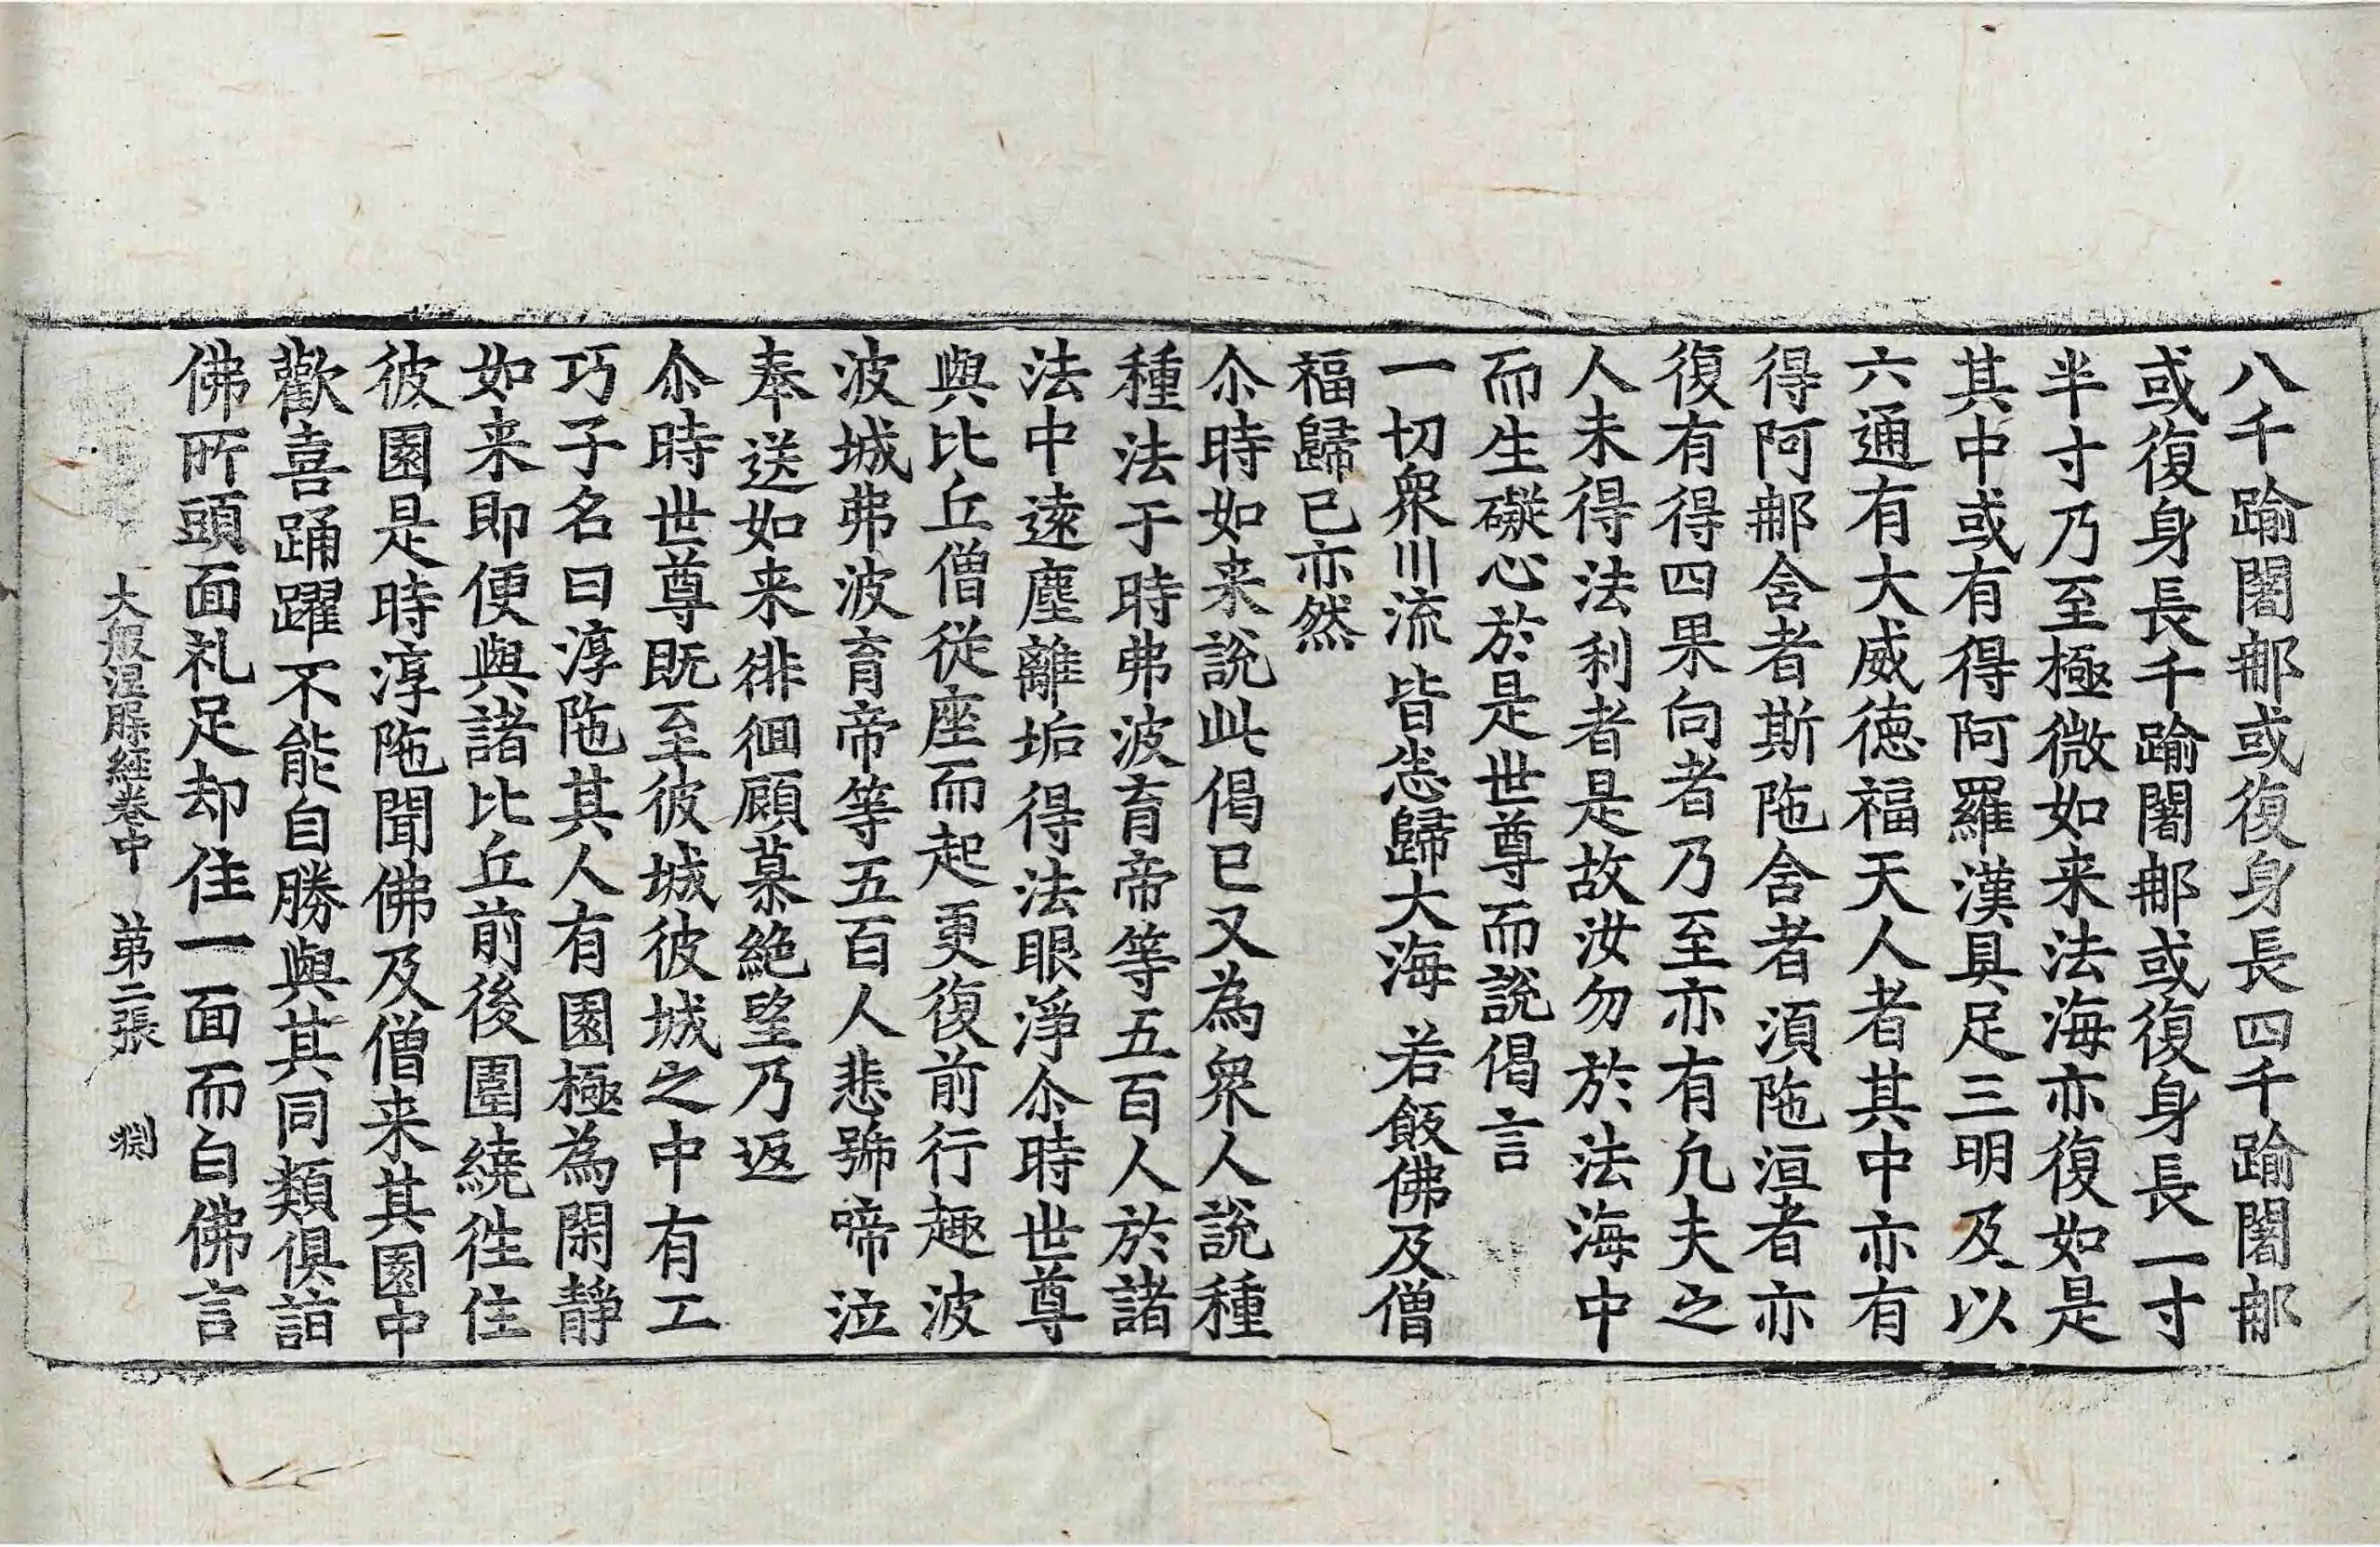 八千踰闍那或復身長四千踰闍那
或復身長千踰闍那或復身長一寸
半寸乃至極微如来法海亦復如是
其中或有得阿羅漢具足三明及以
六通有大威徳福天人者其中亦有
得阿那含者斯陁含者湏陁洹者亦
復有得四果向者乃至亦有凢夫之
人未得法利者是故汝勿於法海中
而生礙心於是世尊而說偈言
一切衆川流 皆悉歸大海 若飯佛及僧
福歸已亦然
尒時如来說此偈已又為衆人說種
種法于時弗波育帝等五百人於諸
法中遠塵離垢得法眼淨尒時世尊
與比丘僧從座而起更復前行趣波
波城弗波育帝等五百人悲號啼泣
奉送如来徘徊顧慕絶望乃返
尒時世尊既至彼城彼城之中有工
巧子名曰淳陁其人有園極為閑靜
如来即便與諸比丘前後圍繞徃住
彼園是時淳陁聞佛及僧来其園中
歡喜踊躍不能自勝與其同類俱詣
佛所頭面礼足却住一面而白佛言
大般涅槃経卷中 苐二張 渊